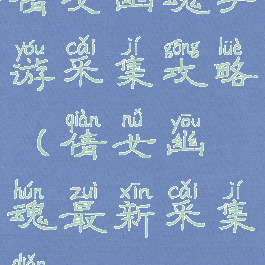 yóu cǎi jí gōng lüè
游采集攻略
qiàn nǚ yōu
（倩女幽
hún zuì xīn cǎi jí
魂最新采集